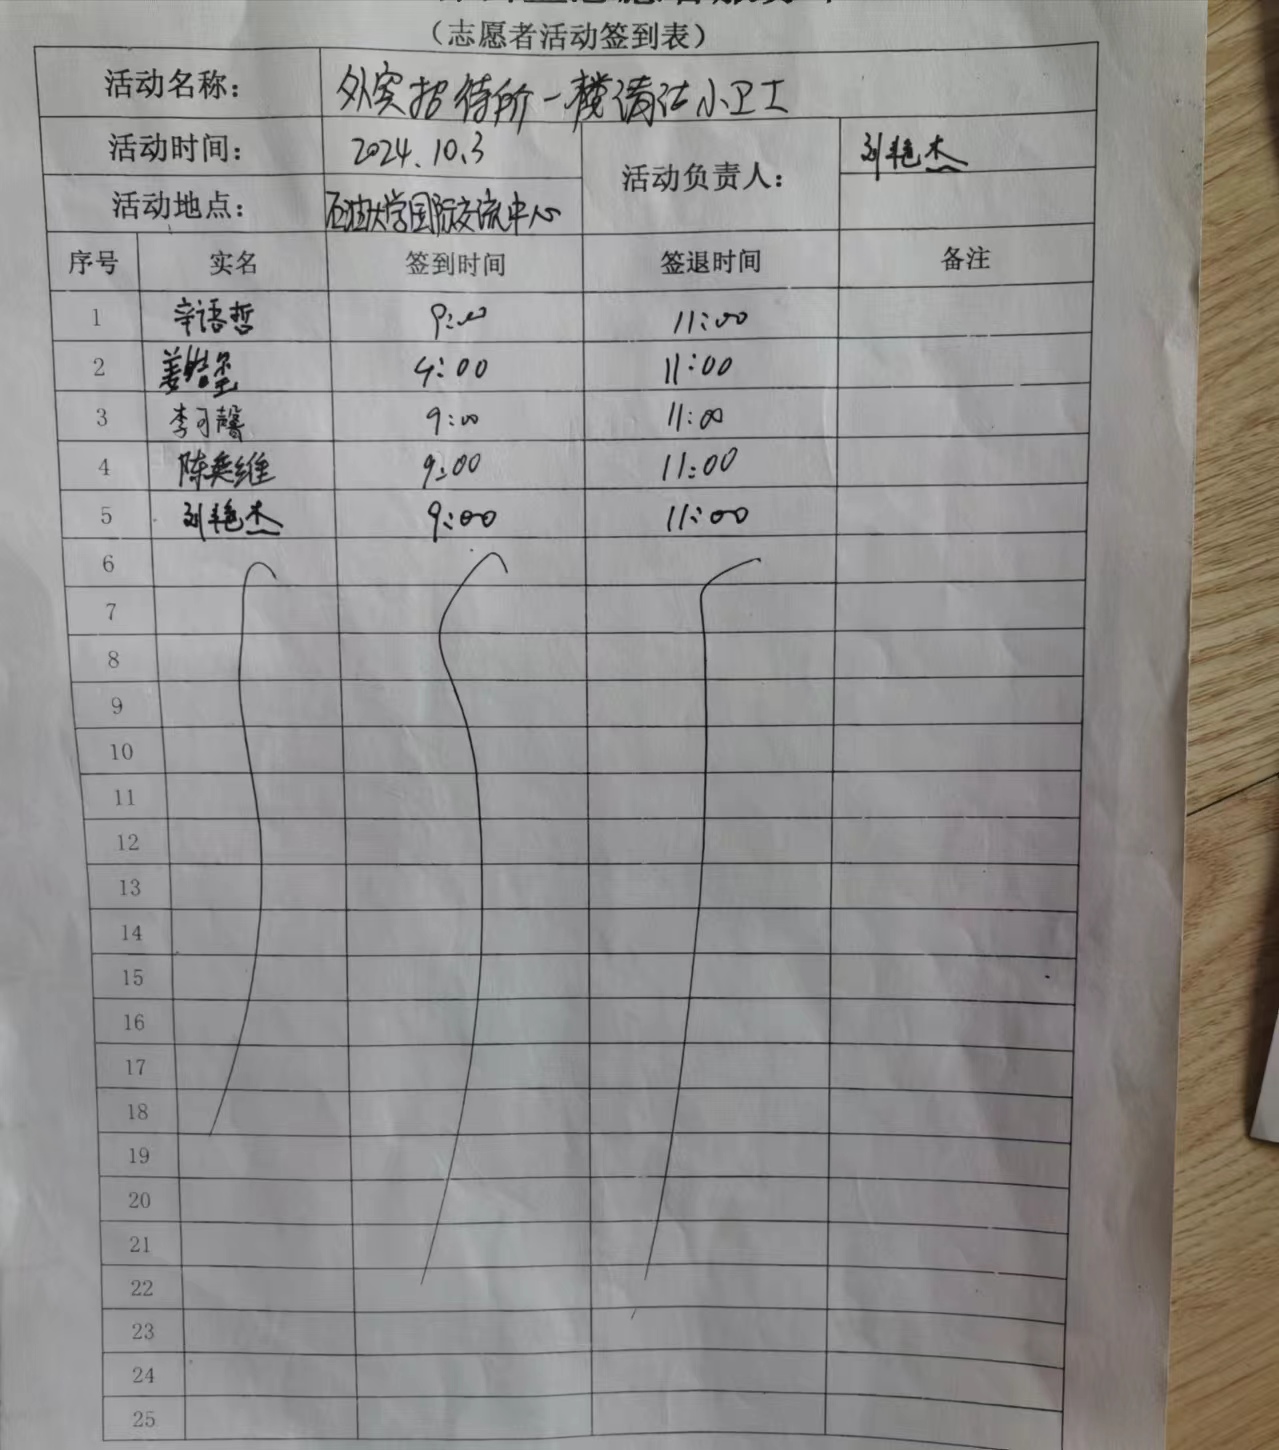 （志愿者活动签到表）
活动名称： 外宾招待所一楼清洁小卫士
活动时间： 2024.10.3 活动负责人： 刘艳杰
活动地点： 石油大学国际交流中心
序号 实名 签到时间 签退时间 备注
1 辛语哲 9:00 11:00
2 姜皓 9:00 11:00
3 李可馨 9:00 11:00
4 陈奕维 9:00 11:00
5 刘艳杰 9:00 11:00
6
7
8
9
10
11
12
13
14
15
16
17
18
19
20
21
22
23
24
25